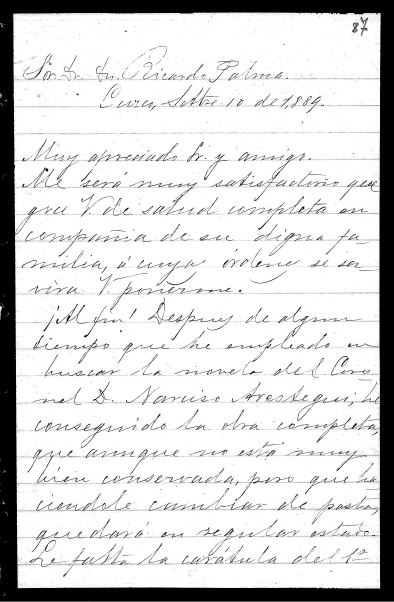 87
Sor Dr. Dn. Ricardo Palma.
Cuzco, Setbre 10 de 1,889.
Muy apreciado Sr. y amigo.
Me será muy satisfactorio que
goce V. de salud completa en
compañia de su digna fa
milia, á cuyas ordenes se ser
virá V. ponerme.
¡Al fin! Despues de algun
tiempo que he empleado en
buscar la novela del Coro
nel D. Narciso Arestegui, he
conseguido la obra completa,
que aunque no está muy
bien conservada, pero que ha
ciendole cambiar de pasta,
quedará en regular estado.
Le falta la carátula del 1º